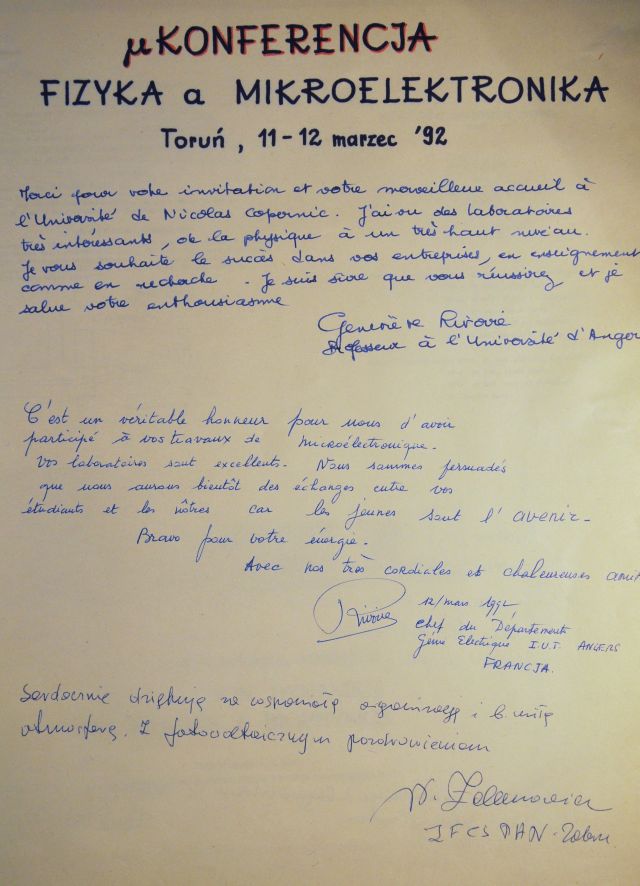 μKONFERENCJA
FIZYKA a MIKROELEKTRONIKA
Toruń, 11-12 marzec '92
Merci pour votre invitation et votre merveilleux accueil à
l'Université de Nicolas Copernic. J'ai vu des laboratoires
très intéressants, de la physique à un très haut niveau.
Je vous souhaite le succès dans vos entreprises, en enseignement
comme en recherche. Je suis sûre que vous réussirez et je
salue votre enthousiasme
Geneviève Rivoire
Professeur à l'Université d'Anger
C'est un véritable honneur pour nous d'avoir
participé à vos travaux de microélectronique.
Vos laboratoires sont excellents. Nous sommes persuadés
que nous aurons bientôt des échanges entre vos
étudiants et les nôtres car les jeunes sont l'avenir.
Bravo pour votre énergie.
Avec nos très cordiales et chaleureuses amit
Rivoire
12/mars 1992
Chef du Département
Génie Electrique I.U.T ANGERS
FRANCJA.
Serdecznie dziękuję za wspaniałą organizację i b. miłą
atmosferę. Z fotowoltaicznym pozdrowieniem
PAN